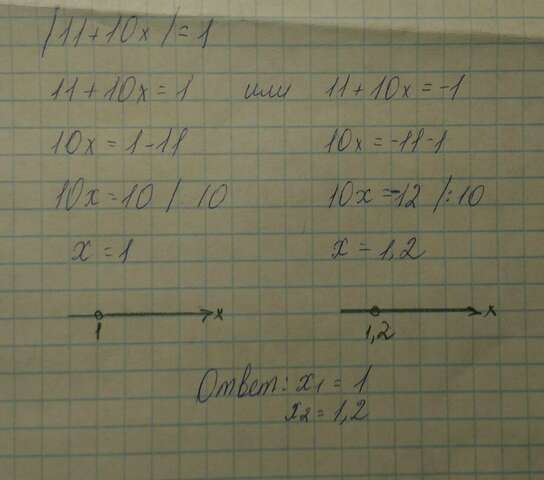 |11+10x|=1
11+10x=1 или 11+10x=-1
10x=1-11 10x=-11-1
10x=10 / 10 10x=-12 /:10
x=1 x=1,2
x x
1 1,2
Ответ: x₁=1
x₂=1,2